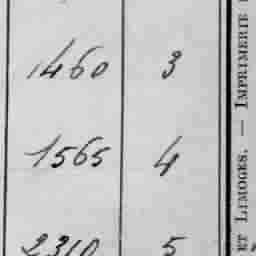 1460 3
1565 4
2310 5
ET LIMOGES. — IMPRIMERIE